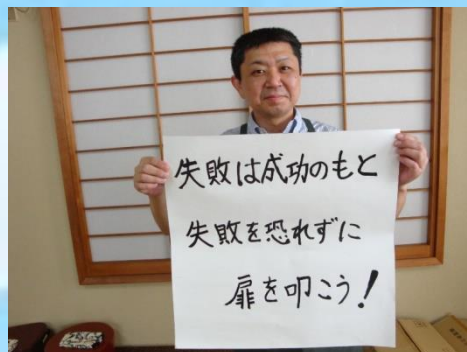 失敗は成功のもと
失敗を恐れずに
扉を叩こう！